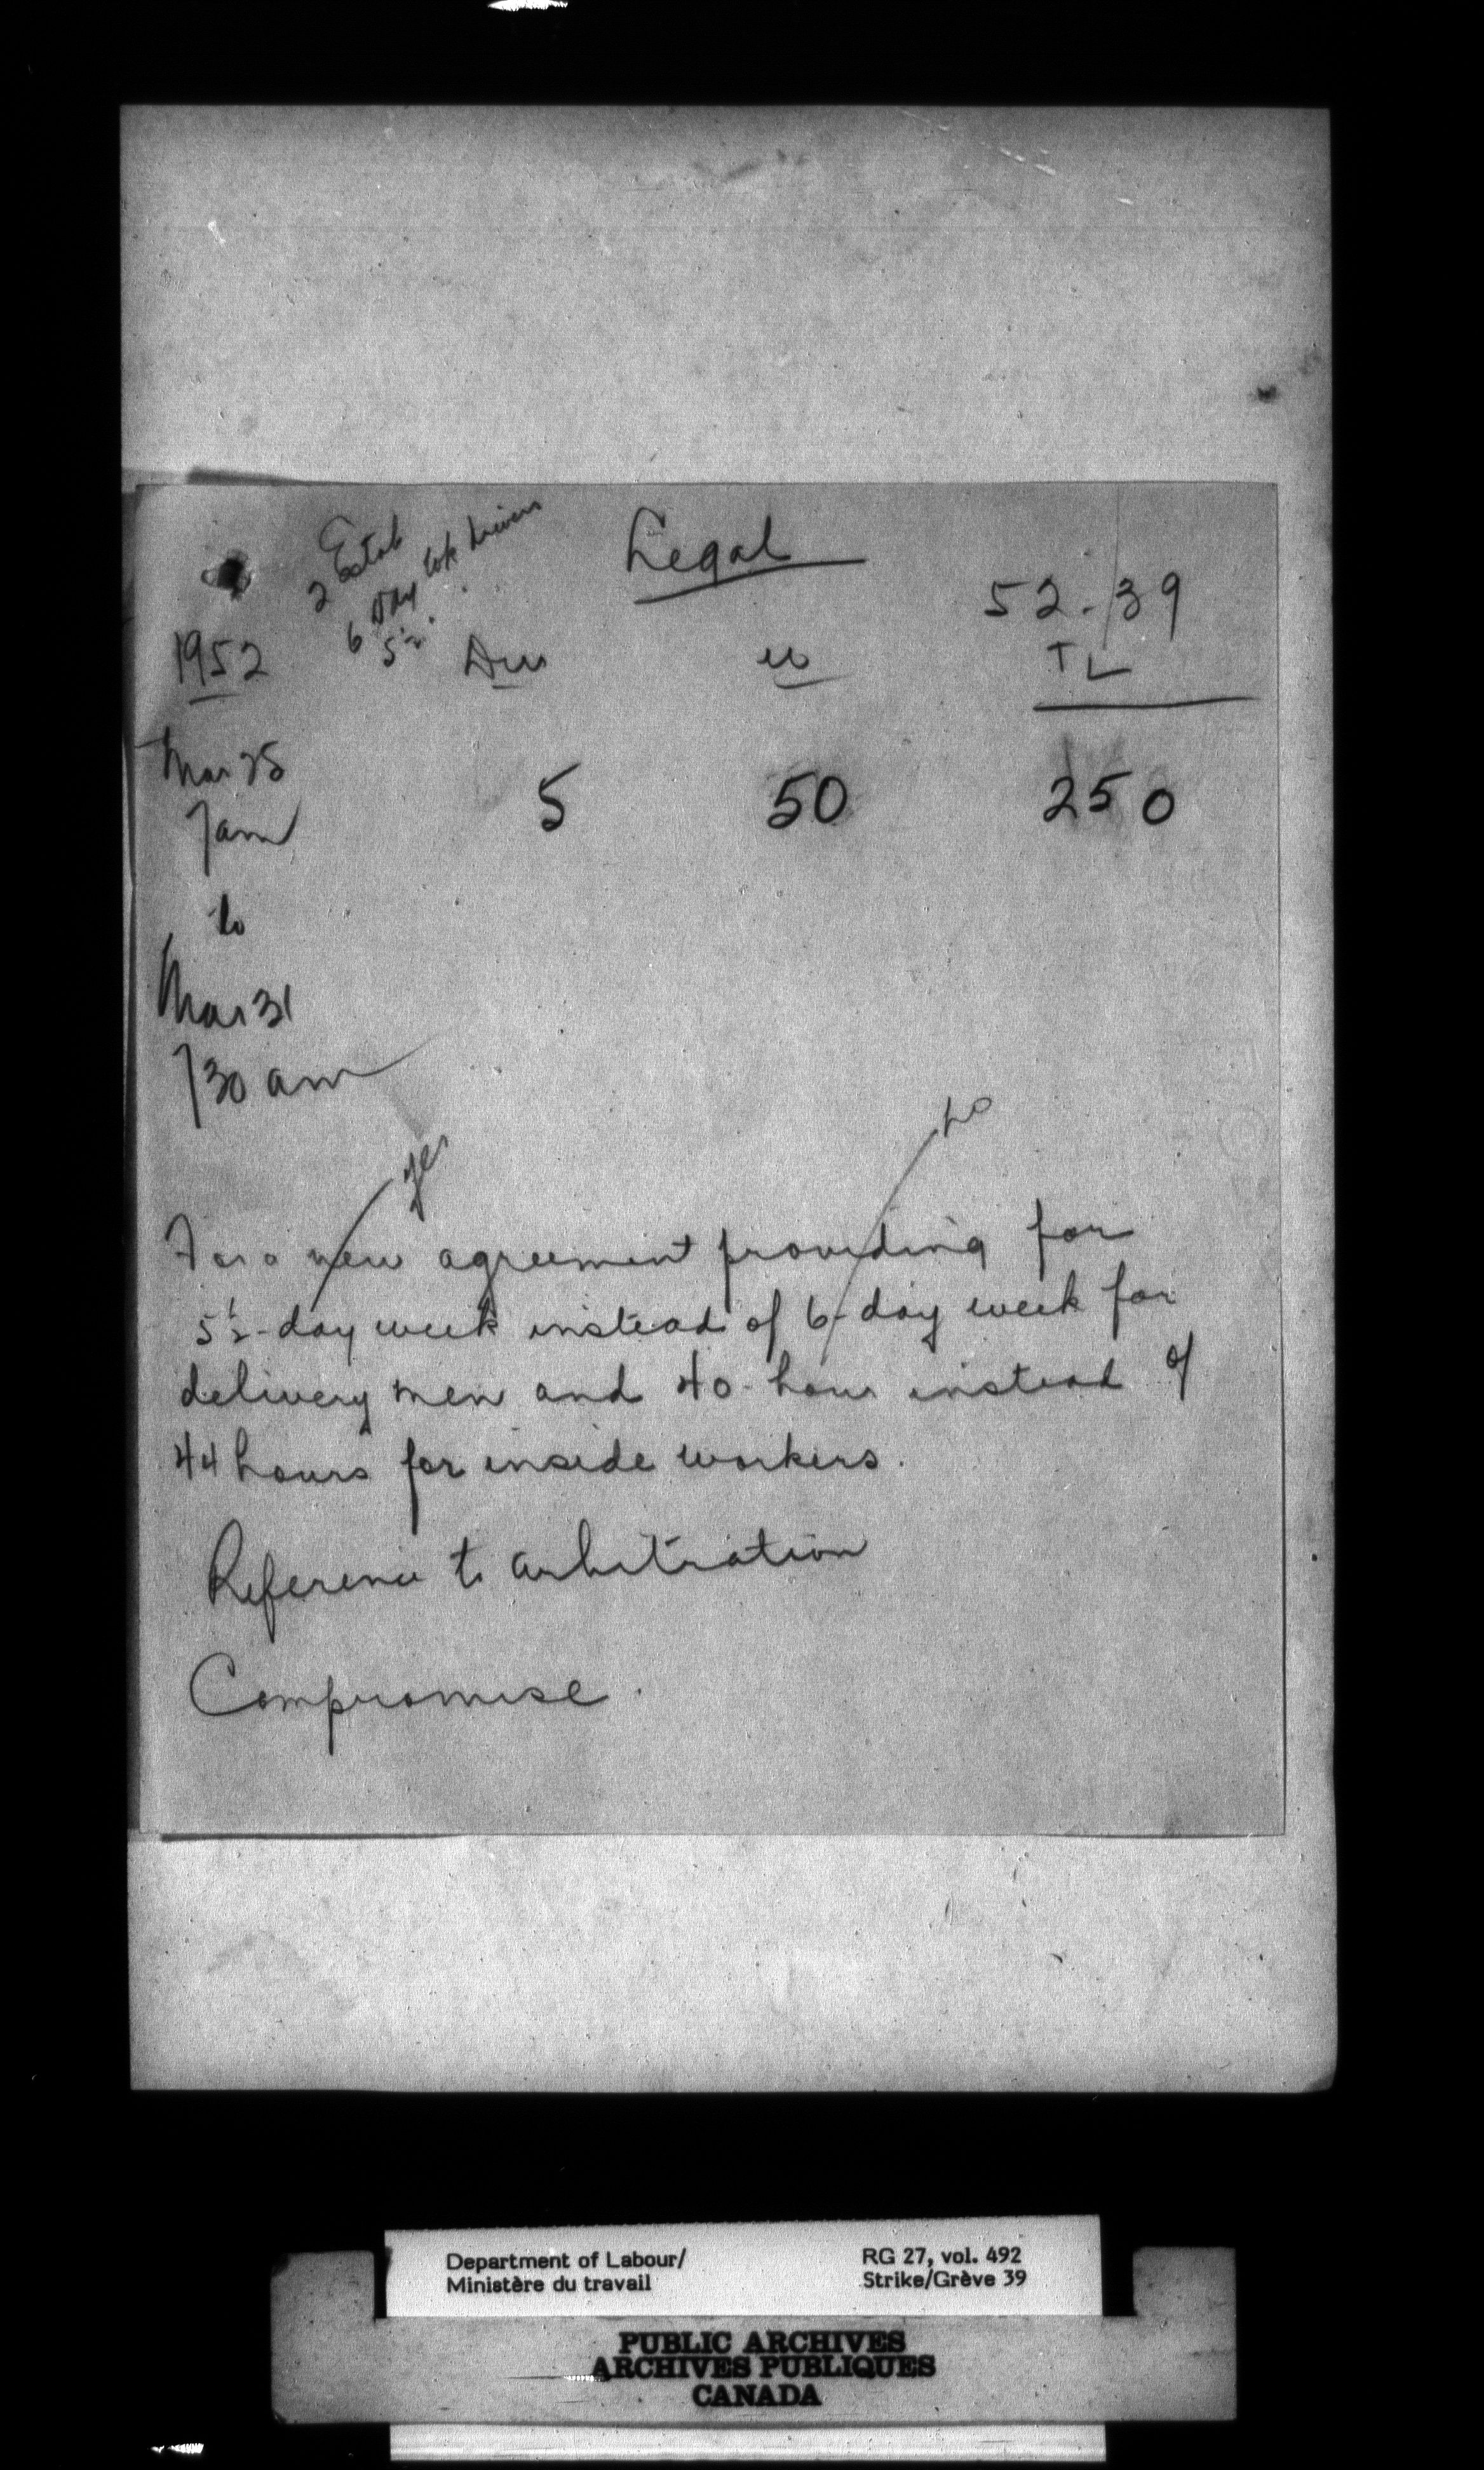 2 Estab
6 Day wk drivers
5½ "
Legal
52-39
1952
Dw
w
TL
Mar 25
7 am
5
50
250
to
Mar 31
730 am
yes
no
For a new agreement providing for
5½-day week instead of 6-day week for
delivery men and 40-hour instead of
44 hours for inside workers.
Reference to arbitration
Compromise.
Department of Labour/
Ministère du travail
RG 27, vol. 492
Strike/Grève 39
PUBLIC ARCHIVES
ARCHIVES PUBLIQUES
CANADA